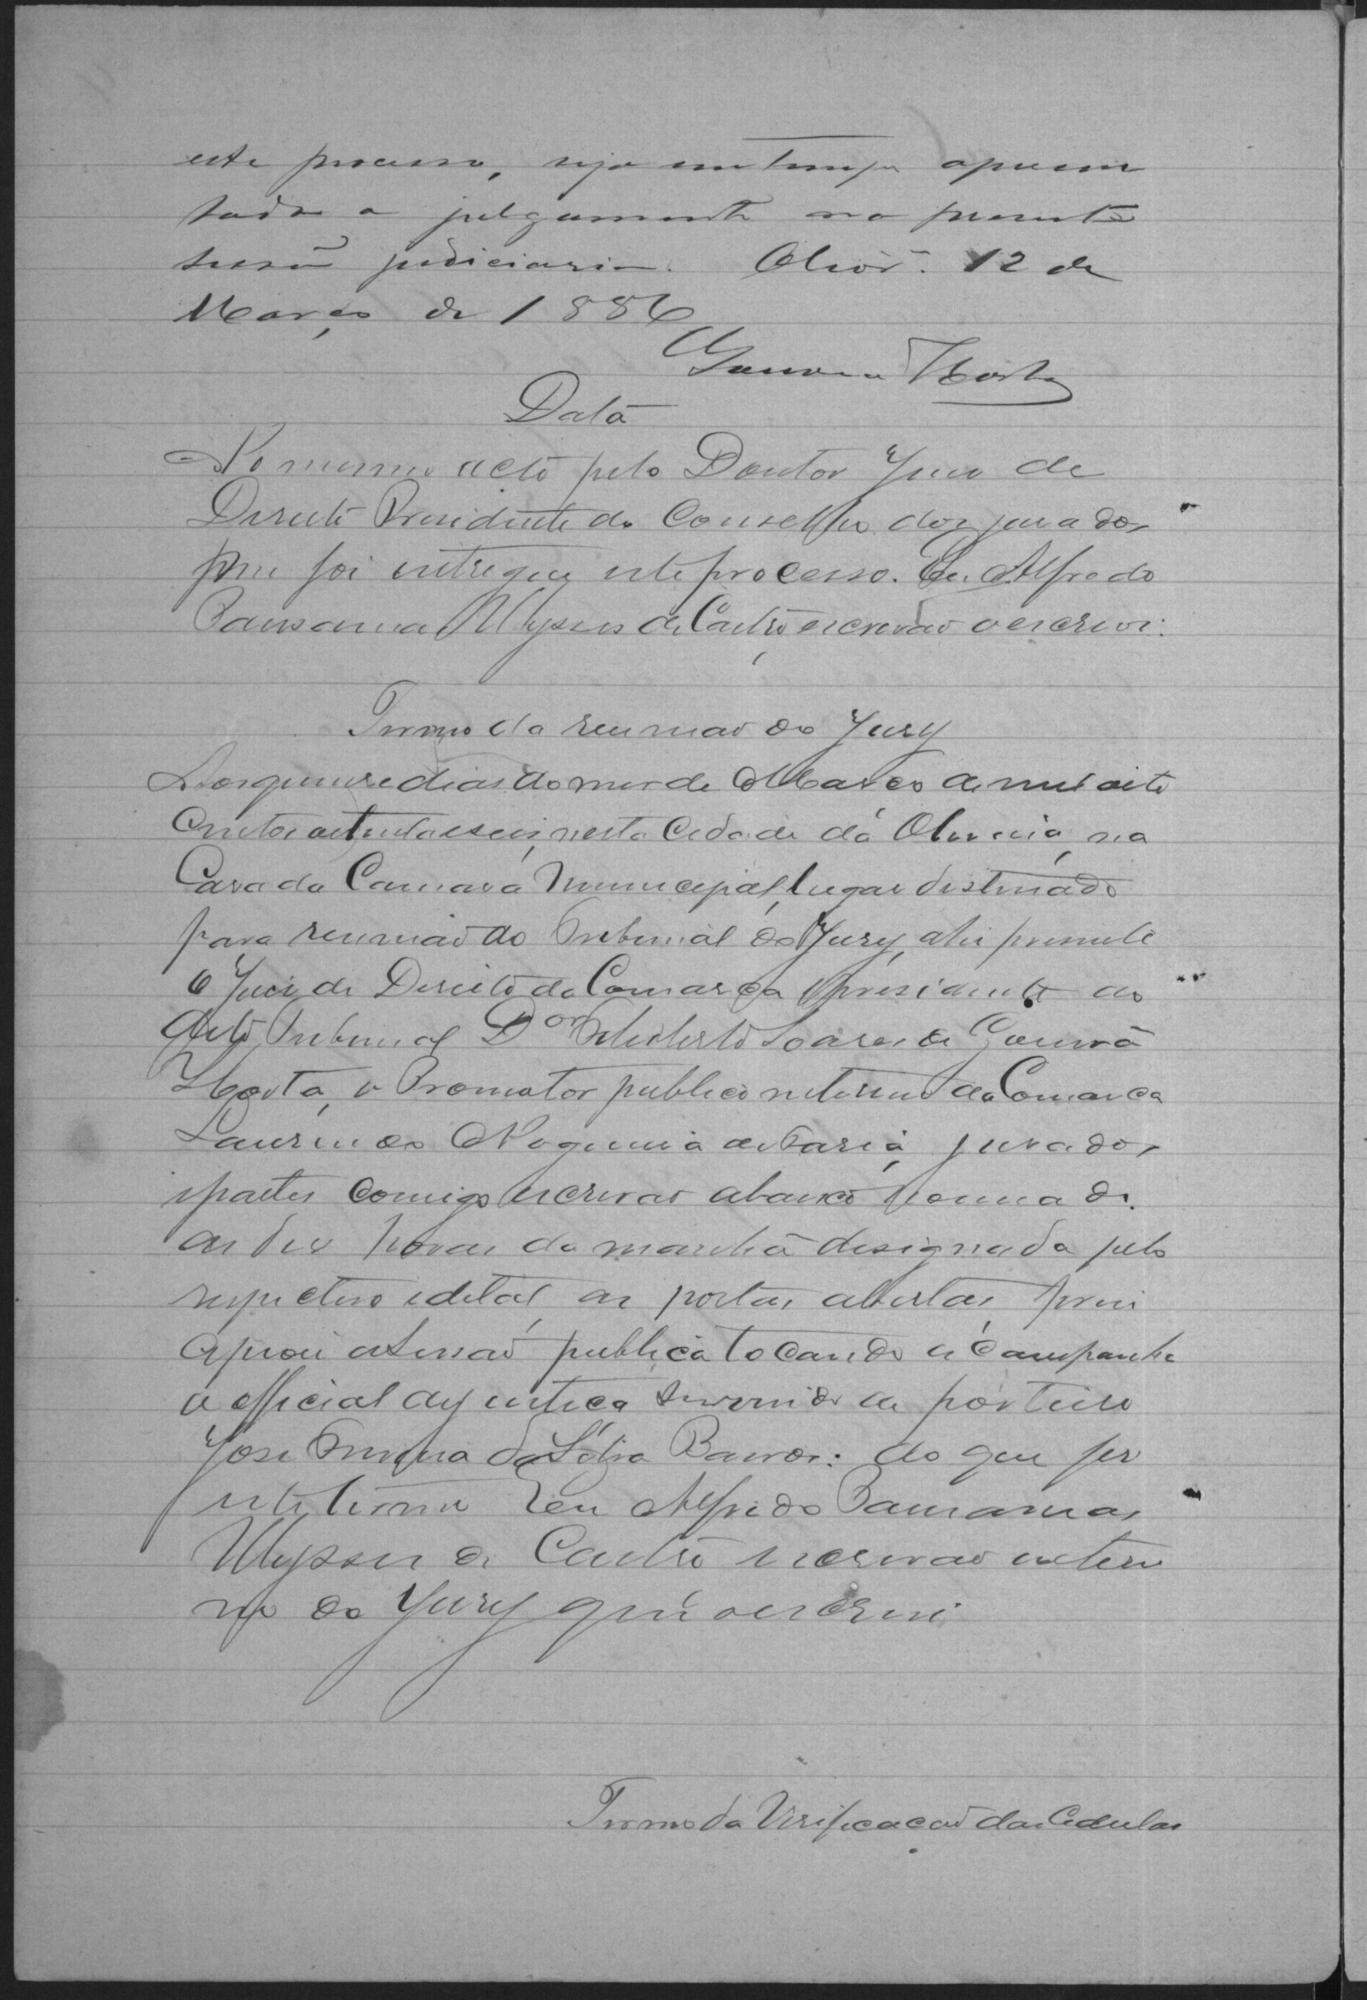 este processo, seja em tempo apresen
tado a julgamento na presente
sessão judiciaria. Olivrª. 12 de
Março de 1886
Gouvea Horta
Data
No mesmo acto pelo Doutor Juiz de
Direito Presidente do Conselho dos jurados
me foi entregue este processo. Eu Alfredo
Pausanias Ulysses de Castro escrivão o escrevi.
Termo da reunião do Jury
Aos quinze dias do mez de Março de mil oito
centos oitenta e seis, nesta Cidade da Oliveira, na
Casa da Camara Municipal, lugar destinado
para reunião do Tribunal do Jury, ahi presente
o Juiz de Direito da Comarca presidente do
dito Tribunal Dor Soares de Gouvêa
Horta, o Promotor publico interino da Comarca
Laurindo Nogueira de Faria, jurados
e partes comigo escrivão abaixo nomeado.
as dez horas da manhã designada pelo
respectivo edital, as portas abertas, prin
cipiou a sessão publica tocando a campanha
o official de justiça servindo de porteiro
José da Silva Barros: do que fiz
este termo Eu Alfredo Pausanias
Ulysses de Castro escrivão interi
no do Jury que o escrevi
Termo da Verificação das Cedulas